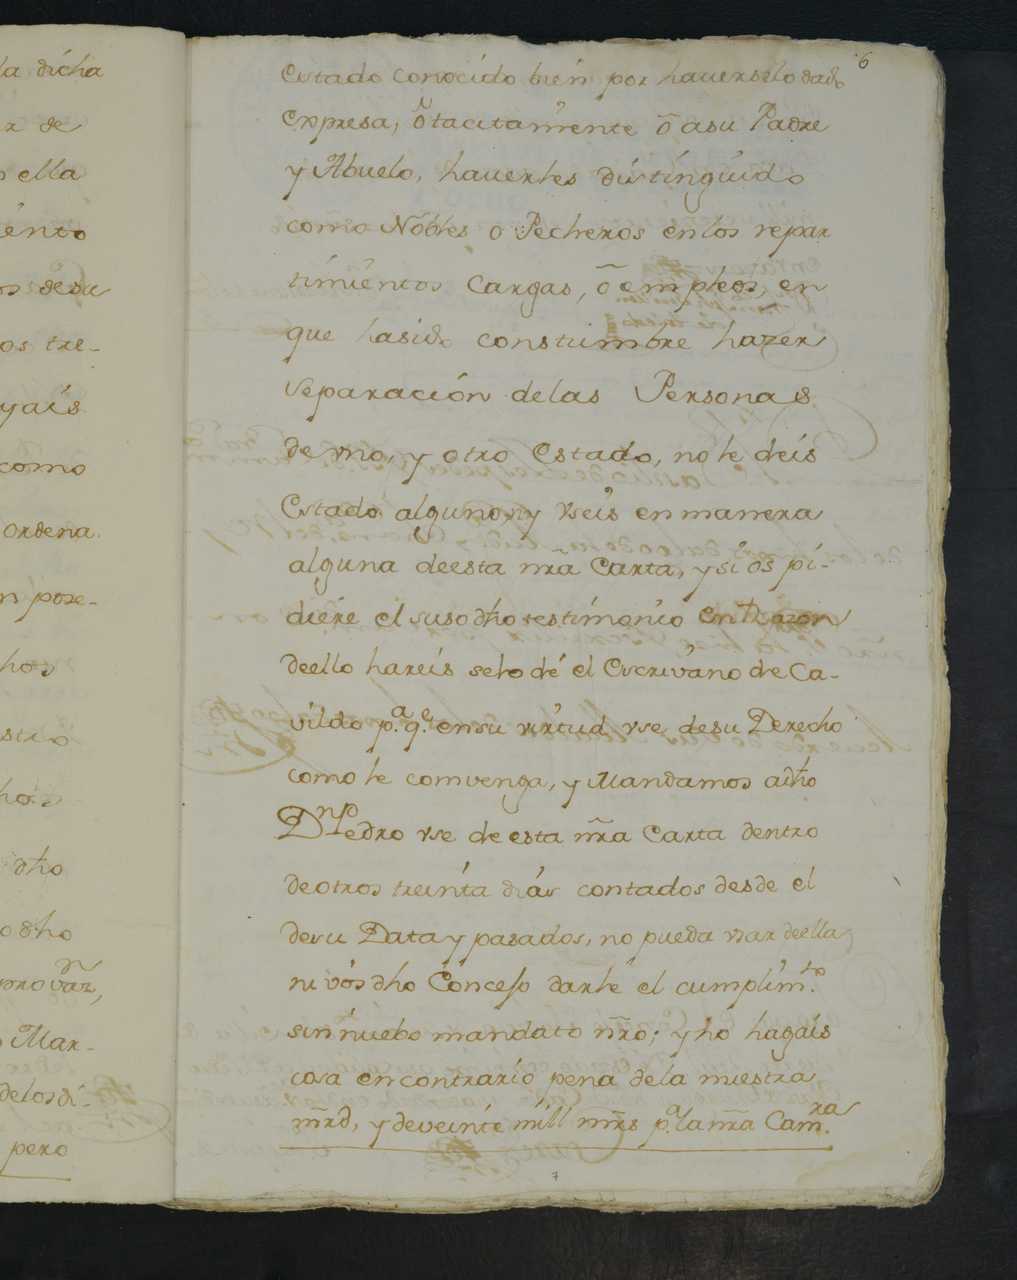 la dicha
r de
o ella
iento
os desu
os tre-
yais
como
ordena
n pose-
hos
stro
hos
dho
o dho
provar,
o Mar-
delos di-
pero
6
Estado conocido bien por haverselo dado
Expresa, ô tacitamente ô asu Padre
y Abuelo, haverles distinguido
como Nobles o Pecheros en los repar
timientos Cargas, ô empleos, en
que hasido constumbre hazer
separacion delas Personas
de vno, y otro Estado, no le deis
Estado alguno, ny vseis en manera
alguna deesta nrã Carta, y si os pi-
diere el susodho testimonio en Razon
deello hareis selo dé el Escrivano de Ca-
vildo p.ª q.e en su virtud vse desu Derecho
como le comvenga, y Mandamos adho
Dn Pedro vse de esta nrã Carta dentro
deotros treinta dias contados desde el
desu Data y pasados, no pueda vsar deella
ni vos dho Conceso darle el cumplim.to
sin nuebo mandato nrõ; y no hagais
cosa encontrario pena dela nuestra
mrd, y deveinte mill mrs p.ª la nrã Cam.ra
7